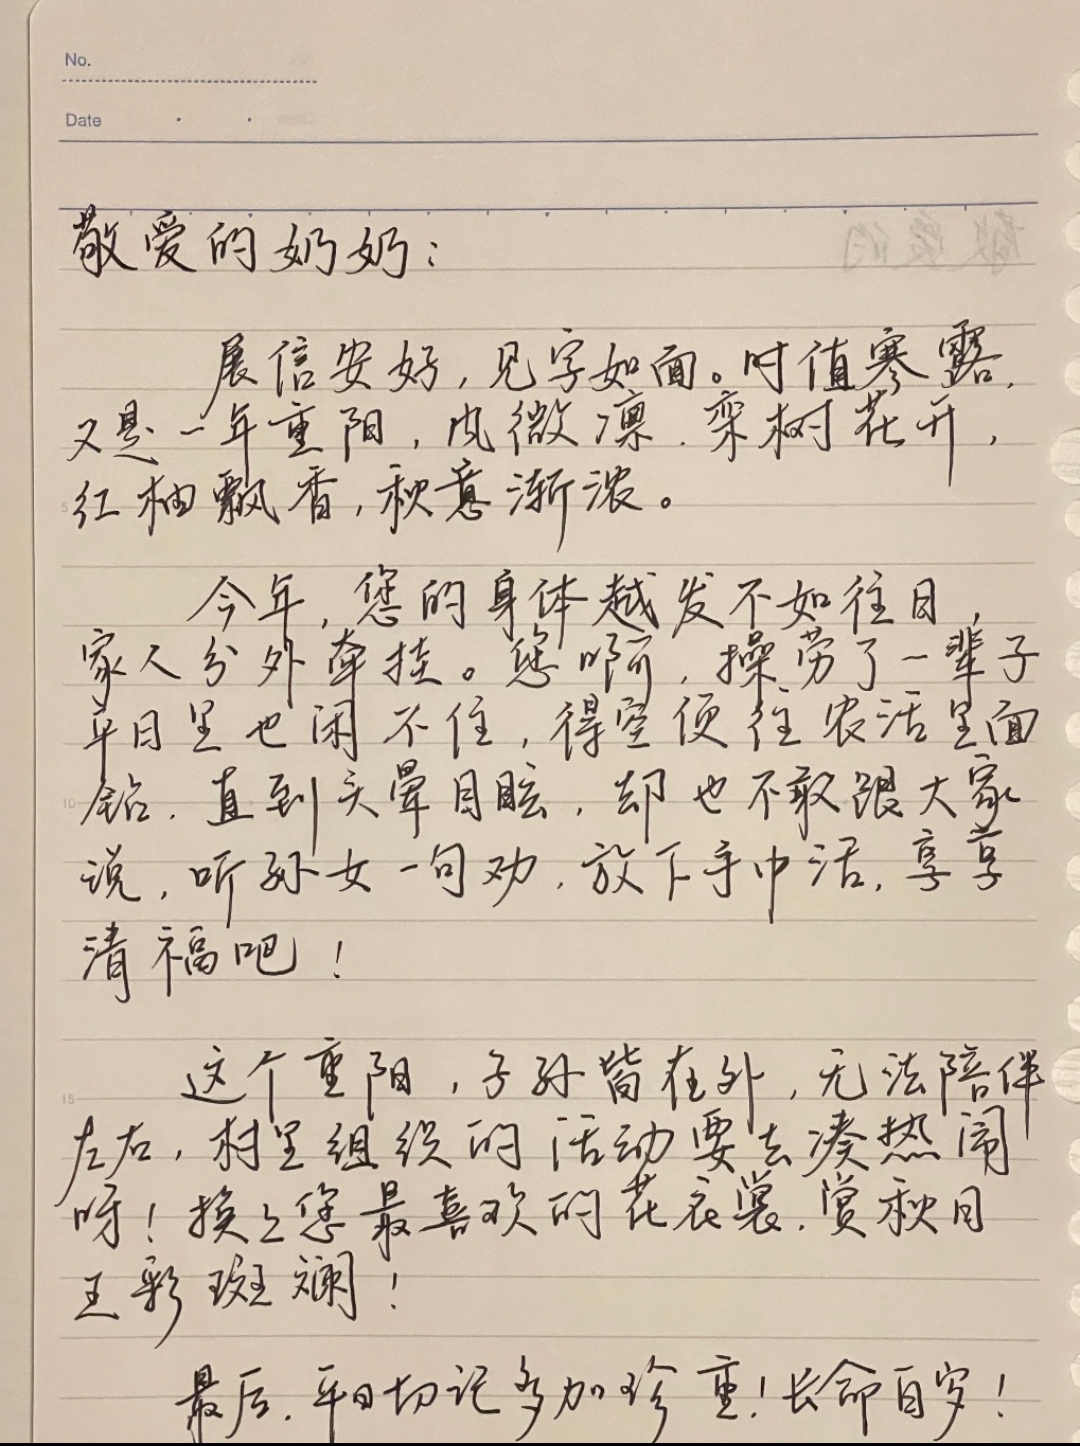 No.
Date
敬爱的奶奶：
展信安好，见字如面。时值寒露，
又是一年重阳，风微凛，栾树花开，
红柚飘香，秋意渐浓。
今年，您的身体越发不如往日，
家人分外牵挂。您啊，操劳了一辈子
平日里也闲不住，得空便往农活里面
钻，直到头晕目眩，却也不敢跟大家
说，听孙女一句劝，放下手中活，享享
清福吧！
这个重阳，子孙皆在外，无法陪伴
左右，村里组织的活动要去凑热闹
呀！换上您最喜欢的花衣裳，赏秋日
五彩斑斓！
最后，平日切记多加珍重！长命百岁！
5
10
15
敬爱的